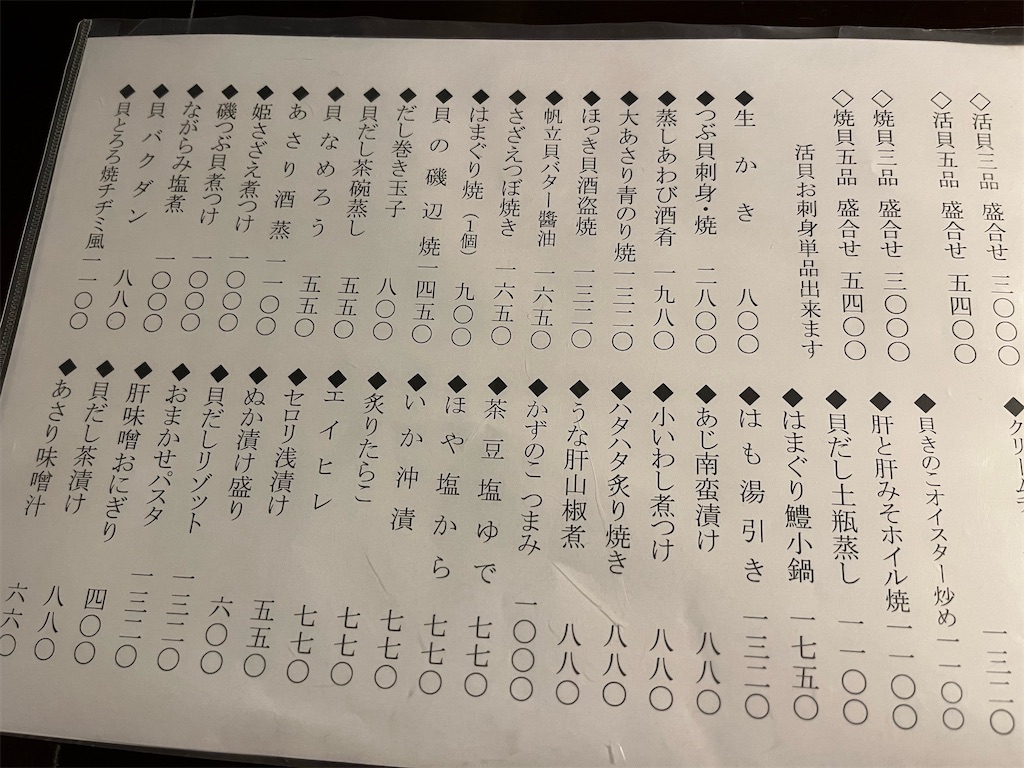 ◇活貝三品 盛合せ 三〇〇〇
◇活貝五品 盛合せ 五四〇〇
◇焼貝三品 盛合せ 三〇〇〇
◇焼貝五品 盛合せ 五四〇〇
活貝お刺身単品出来ます
◆生かき 八〇〇
◆つぶ貝刺身・焼 二八〇〇
◆蒸しあわび酒肴 一九八〇
◆大あさり青のり焼 一三二〇
◆ほっき貝酒盗焼 一三二〇
◆帆立貝バター醬油 一六五〇
◆さざえつぼ焼き 一六五〇
◆はまぐり焼(1個) 九〇〇
◆貝の磯辺焼 一四五〇
◆だし巻き玉子 八〇〇
◆貝だし茶碗蒸し 五五〇
◆貝なめろう 五五〇
◆あさり酒蒸 一一〇〇
◆姫さざえ煮つけ 一〇〇〇
◆磯つぶ貝煮つけ 一〇〇〇
◆ながらみ塩煮 一〇〇〇
◆貝バクダン 八八〇
◆貝とろろ焼チヂミ風 一一〇〇
◆クリーム 一三二〇
◆貝きのこオイスター炒め 一一〇〇
◆肝と肝みそホイル焼 一一〇〇
◆貝だし土瓶蒸し 一一〇〇
◆はまぐり鱧小鍋 一七五〇
◆はも湯引き 一三二〇
◆あじ南蛮漬け 八八〇
◆小いわし煮つけ 八八〇
◆ハタハタ炙り焼き 八八〇
◆うな肝山椒煮 八八〇
◆かずのこつまみ 一〇〇〇
◆茶豆塩ゆで 七七〇
◆ほや塩から 七七〇
◆いか沖漬 七七〇
◆炙りたらこ 七七〇
◆エイヒレ 七七〇
◆セロリ浅漬け 五五〇
◆ぬか漬け盛り 六〇〇
◆貝だしリゾット 一三二〇
◆おまかせパスタ 一三二〇
◆肝味噌おにぎり 四〇〇
◆貝だし茶漬け 八八〇
◆あさり味噌汁 六六〇